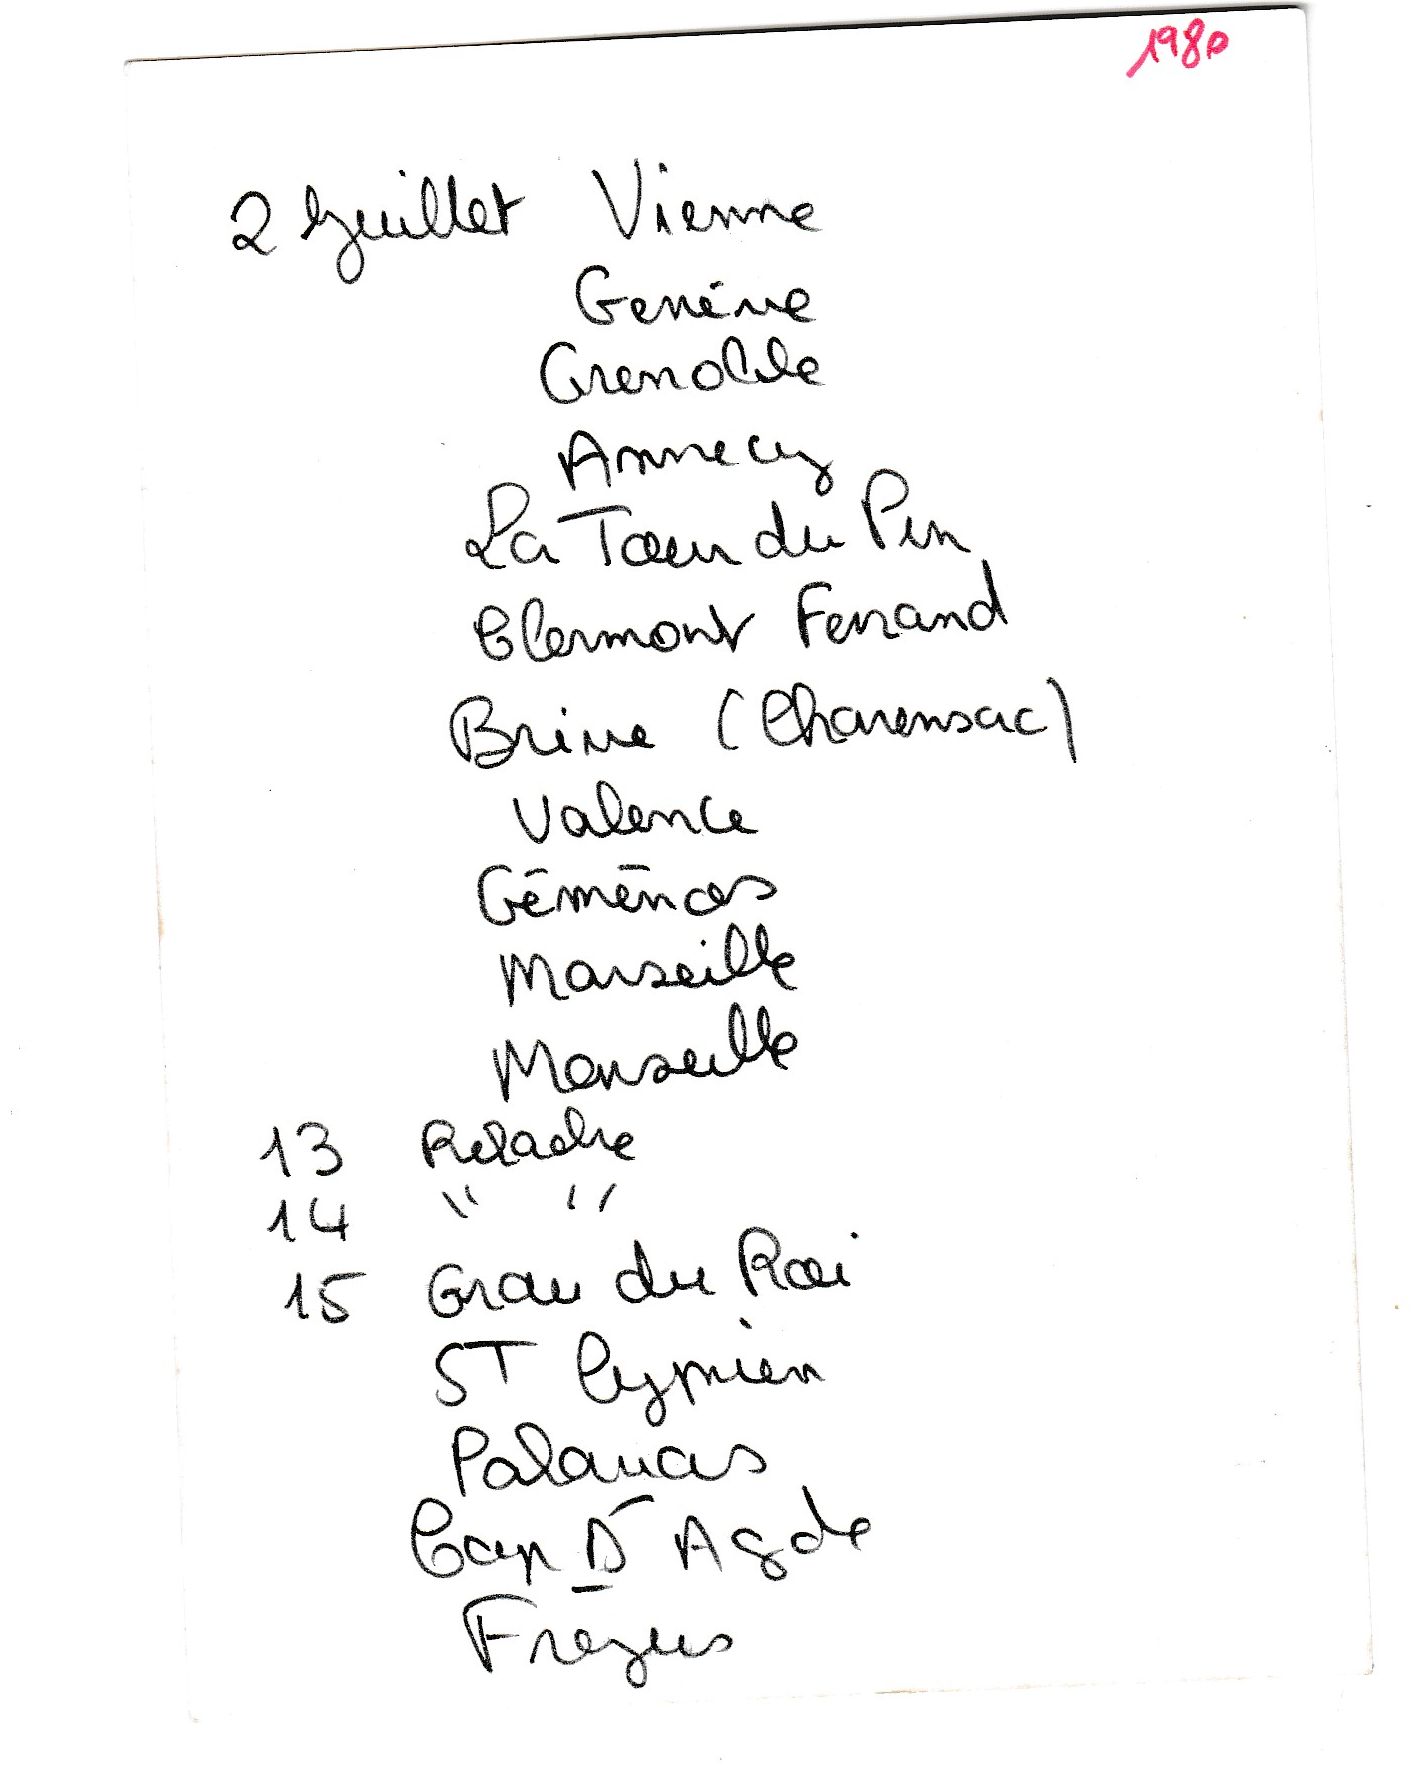 1980
2 Juillet Vienne
Genéve
Grenoble
Annecy
La Tour du Pin
Clermont Ferrand
Brive (Charensac)
Valence
Géménos
Marseille
Marseille
13 Relache
14 " "
15 Grau du Roi
ST Cyprien
Palavas
Cap D'Agde
Frejus